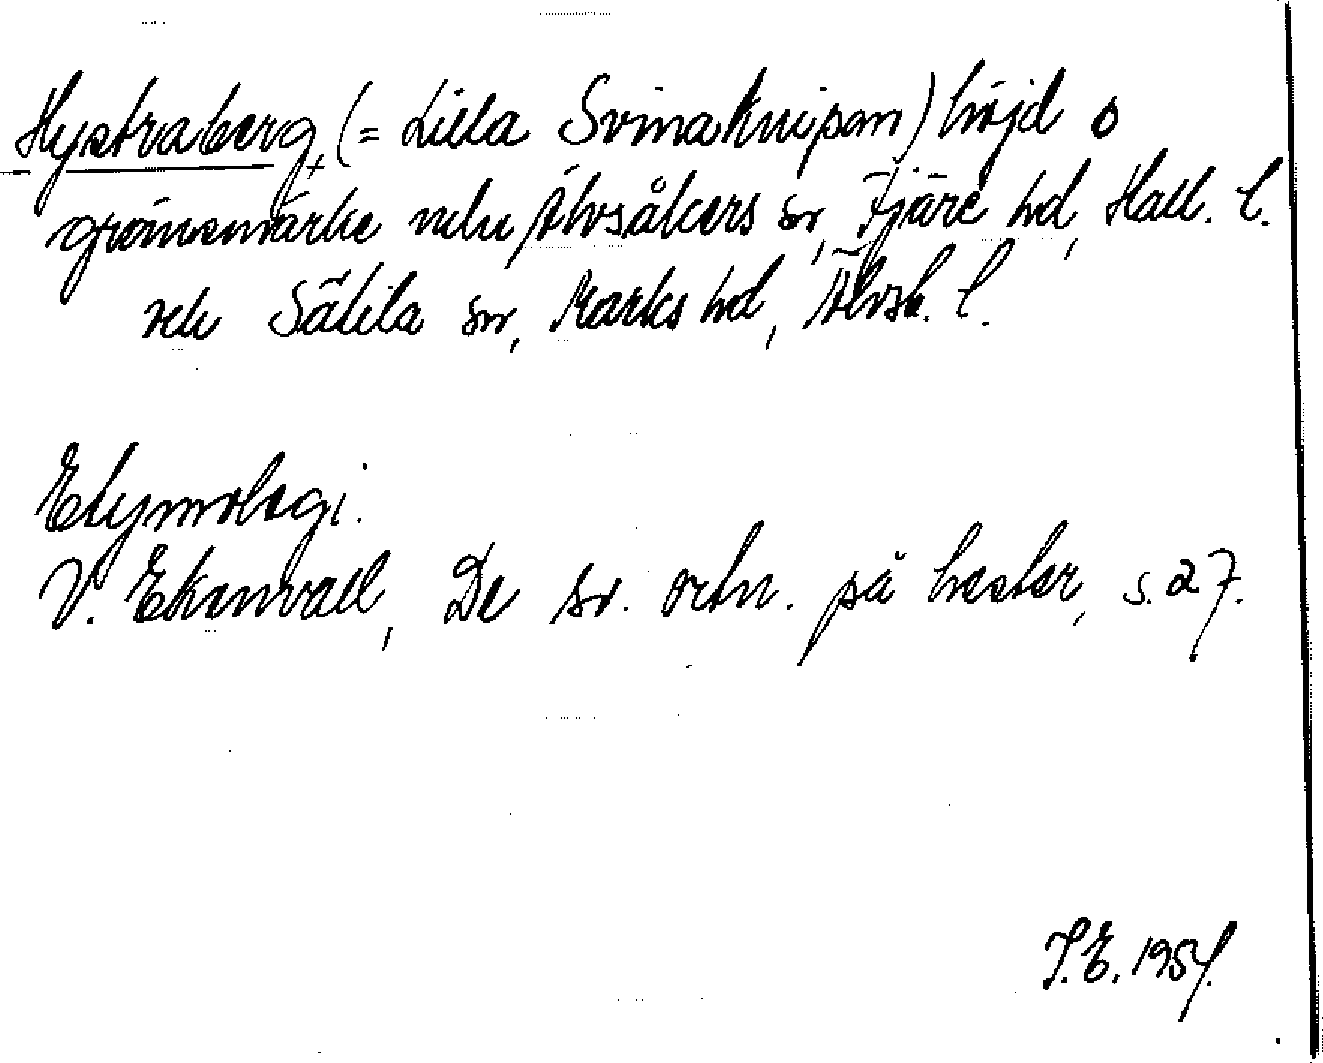 Hystraberg, (= Lilla Svinaknipan) höjd o
gränsmärke mln Älvsåkers sn, Fjäre hd, Hall. l.
och Sätila sn, Marks hd, Älvsb. l.
Etymologi.
V. Ekenvall, De sv. ortn. på hester, s. 27.
T.E. 1954.